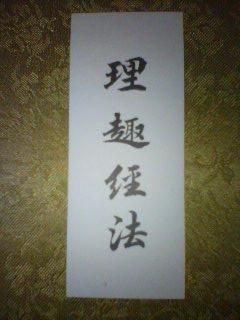 理趣経法